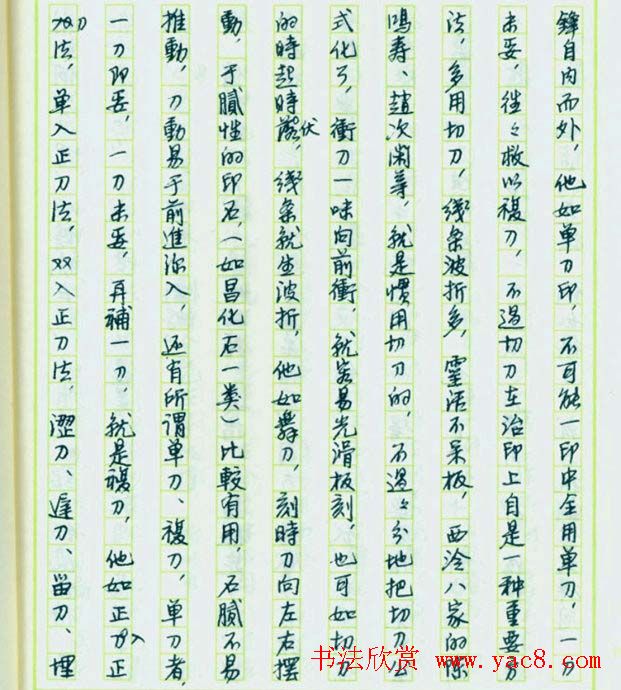 鋒自内而外，他如单刀印，不可能一印中全用单刀，一刀
未妥，往々救以複刀，不過切刀在治印上自是一种重要方
法，多用切刀，綫条波折多，靈活不呆板，西泠八家的陈
鸿寿、趙次闲等，就是慣用切刀的，不過々分地把切刀公
式化了，衝刀一味向前衝，就容易光滑板刻，也可如切刀
的時起時伏，綫条就生波折，他如舞刀，刻時刀向左右摆
動，于腻性的印石，（如昌化石一类）比較有用，石腻不易
推動，刀動易于前進深入，还有所谓单刀、複刀，单刀者，
一刀即妥，一刀未妥，再補一刀，就是複刀，他如正入正
刀法，单入正刀法，双入正刀法，澀刀、遲刀、留刀、埋
书法欣赏 www.yac8.com